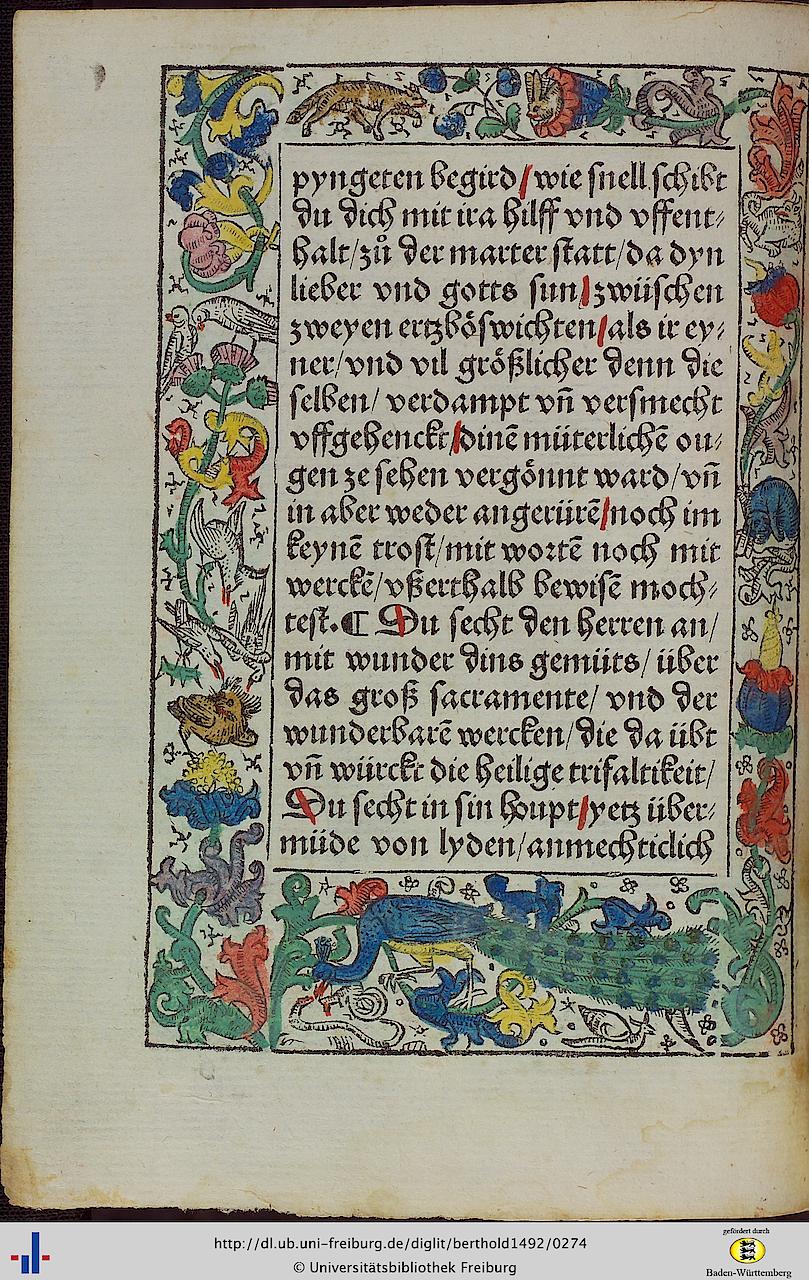 pyngeten begird/wie snell schibt
du dich mit ira hilff vnd vffent⸗
halt/zuͦ der marter statt/da dyn
lieber vnd gotts sun/zwüschen
zweyen ertzböswichten/als ir ey⸗
ner/vnd vil größlicher denn die
selben/ verdampt vn̄ versmecht
vffgehenckt/dinē müterlichē ou⸗
gen ze sehen vergönnt ward/vn̄
in aber weder angerürē/noch im
keynē trost/mit wortē noch mit
werckē/vßerthalb bewisē moch⸗
test.¶ Du secht den herren an/
mit wunder dins gemüts/ über
das groß sacramente/ vnd der
wunderbarē wercken/die da übt
vn̄ würckt die heilige trifaltikeit/
Du secht in sin houpt/yetz über⸗
müde von lyden/anmechticlich
http://dl.ub.uni-freiburg.de/diglit/berthold1492/0274
© Universitätsbibliothek Freiburg
gefördert durch
Baden-Württemberg